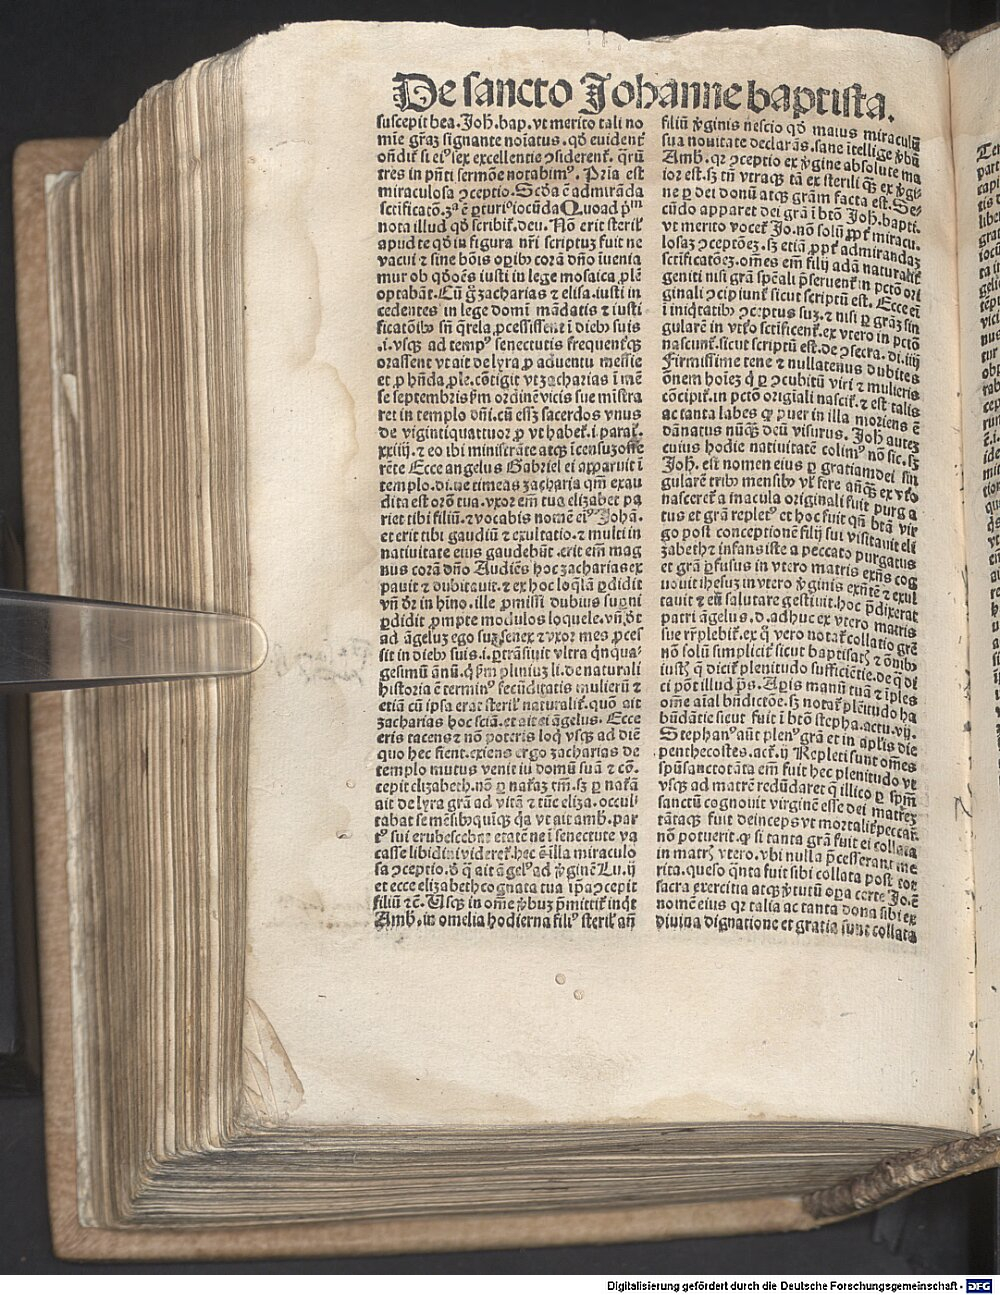 De sancto Johanne baptista.
suscepit bea. Joh̄. bap. vt merito tali no
mīe grāȝ signante noīatus. qđ euident᷑
ondit᷑ si eiꝰ sex excellentie ꝯsiderent᷑. qꝛū
tres in pn̄ti sermōe notabimꝰ. Pria est
miraculosa ꝯceptio. Scđa ē admirāda
sctificatō. 3ᵃ ē ꝑturiꝰ iocūda Quoad pᵐ
nota illud qđ scribit᷑. deu. Nō erit steril᷑
apud te qđ in figura nr̄i scriptuȝ fuit ne
vacui ⁊ sine bōis oꝑibꝰ corā dn̄o īuenia
mur ob qđ oēs iusti in lege mosaica ꝓlē
optabāt. Cū g̊ zacharias ⁊ elisa. iusti in
cedentes in lege domini mādatis ⁊ iusti
ficatōibꝰ sn̄ q̄rela ꝓcessissent ī diebꝰ suis
.i. vsqꝫ ad tempꝰ senectutis frequent᷑qꝫ
orassent vt ait de lyra ꝓ aduentu messie
et ꝓ hn̄da ꝓle. cōtigit vt zacharias ī mē
se septembris ẜm ordinē vicis sue mīstra
ret in templo dn̄i. cū essȝ sacerdos vnus
de viginti quattuor ꝓ vt habet᷑. i. paral᷑.
xxiiij. ⁊ eo ibi ministrāte atqꝫ īcensuȝ offe
rēte Ecce angelus Gabriel ei apparuit ī
templo. di. ne timeas zacharia qm̄ exau
dita est orō tua. vxor em̄ tua elizabet pa
riet tibi filiū. ⁊ vocabis nomē eiꝰ Johā.
et erit tibi gaudiū ⁊ exultatio. ⁊ multi in
natiuitate eius gaudebūt. erit em̄ mag
nus corā dn̄o Audiēs hoc zacharias ex
pauit ⁊ dubitauit. ⁊ ex hoc loq̄lā ꝑdidit
vn̄ dr̄ in hino. ille ꝓmissi dubius suꝑni
ꝑdidit ꝓmpte modulos loquele. vn̄. dr̄t
ad āgelū ego suȝ senex ⁊ vxor mea ꝓces
sit in diebꝰ suis. i. ꝑtrāsiuit vltra qn̄qua-
gesimū annū. q̇ ẜm pliniuȝ li. de naturali
historia ē terminꝰ fecūditatis mulierū ⁊
etiā cū ipsa erat steril᷑ naturalit᷑. quō ait
zacharias hoc sciā. et ait ei āgelus. Ecce
eris tacens ⁊ nō poteris loqͥ vsqꝫ ad diē
quo hec fient. exiens ergo zacharias de
templo mutus venit in domū suā ⁊ cō-
cepit elizabeth. nō ꝑ naturaȝ tm̄. sȝ ꝑ naturā
ait de lyra grā ad vitā ⁊ tūc eliza. occul
tabat se mēsibꝰ quīqꝫ q̇a vt ait amb. par
tꝰ sui erubescebat etatē ne ī senectute va
casse libidini videret᷑. hec ē illa miraculo
sa ꝯceptio. đ q̇ ait āgelꝰ ad v̄ginē Lu. ij
et ecce elizabeth cognata tua ip̄a ꝯcepit
filiū ⁊c̄. Usqꝫ in om̄e v̄buȝ p̄mittit᷑ inqt
Amb. in omelia hodierna filiꝰ steril᷑ an̄
filiū v̄ginis nescio qđ maius miraculū
sua nouitate declarās. sane ītellige v̄bū
Amb. qꝛ ꝯceptio ex v̄gine absolute ma
ior est. sȝ tn̄ vtraqꝫ tā ex sterili qꝫ ex v̄gi-
ne ꝑ dei donū atqꝫ grām facta est. Se-
cūdo apparet dei grā ī btō Joh̄. bapti.
vt merito vocet᷑ Jo. nō solū ꝓpt᷑ miracu.
losaȝ ꝯceptōeȝ. sȝ etiā ꝓpt᷑ admirandaȝ
sctificatōeȝ. om̄es em̄ filij adā naturalit᷑
geniti nisi grā spēali p̄seruent᷑ in pctō ori
ginali ꝯcipiunt᷑ sicut scriptū est. Ecce ei
ī iniqtatibꝰ ꝯceptus suȝ. ⁊ nisi ꝑ grāȝ sin
gularē in vt᷑o sctificent᷑. ex vtero in pctō
nascunt᷑. sicut scriptū est. de ꝯsecra. di. iiij
Firmissime tene ⁊ nullatenus dubites
ōnem hoīeȝ q̇ ꝑ ꝯcubitū viri ⁊ mulieris
cōcipit᷑. in pctō origiali nascit᷑. ⁊ est talis
ac tanta labes qꝫ puer in illa moriens ē
dānatus nūqꝫ deū visurus. Joh̄ auteȝ
cuius hodie natiuitatē colimꝰ nō sic. sȝ
Joh̄. est nomen eius ꝑ gratiam dei sin
gularē tribꝰ mensibꝰ vl᷑ fere anꝙ ex vt᷑o
nasceret᷑ a macula originali fuit purga
tus et grā repletꝰ et hoc fuit qn̄ btā vir
go post conceptionē filij sui visitauit eli
zabeth ⁊ infans iste a peccato purgatus
et grā ꝑfusus in vtero matris exn̄s cog
nouit ihesuȝ in vtero v̄ginis exn̄tē ⁊ exul
tauit ⁊ eū salutare gestiuit. hoc p̄dixerat
patri āgelus. d. adhuc ex vtero matris
sue rr̄plebit᷑. ex q̇ vero notat᷑ collatio grē
nō solū simplicit᷑ sicut baptisatȝ ⁊ ōnibꝰ
iustȝ q̇ dicit᷑ plenitudo sufficiētie. de q̇ di
ci pōt illud ps̄. Apis manū tuā ⁊ īples
om̄e aīal bn̄dictōe. sȝ notat᷑ plēitudo ha
būdātie sicut fuit ī btō stepha. actu. vij.
Stephanꝰ aūt plenꝰ grā et in apl̄is die
penthecostes. act᷑. ij Repleti sunt om̄es
spūsancto tāta em̄ fuit hec plenitudo vt
vsqꝫ ad matrē redūdaret q̇ illico ꝑ spm̄
sanctū cognouit virginē esse dei matreȝ
tātaqꝫ fuit deinceps vt mortalit᷑ peccar᷑
nō potuerit. ꝙ si tanta grā fuit ei collata
in matrȝ vtero. vbi nulla p̄cesserant me
rita. queso qnta fuit sibi collata post tot
sacra exercitia atqꝫ v̄tutū oꝑa certe Jo. ē
nomē eius qꝛ talia ac tanta dona sibi ex
diuina dignatione et gratia sunt collata
Digitalisierung gefördert durch die Deutsche Forschungsgemeinschaft - DFG